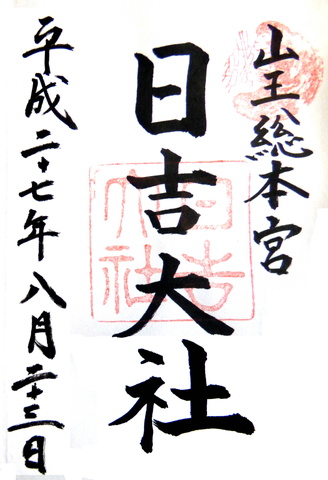 山王総本宮
日吉大社
平成二十七年八月二十三日
日吉大社